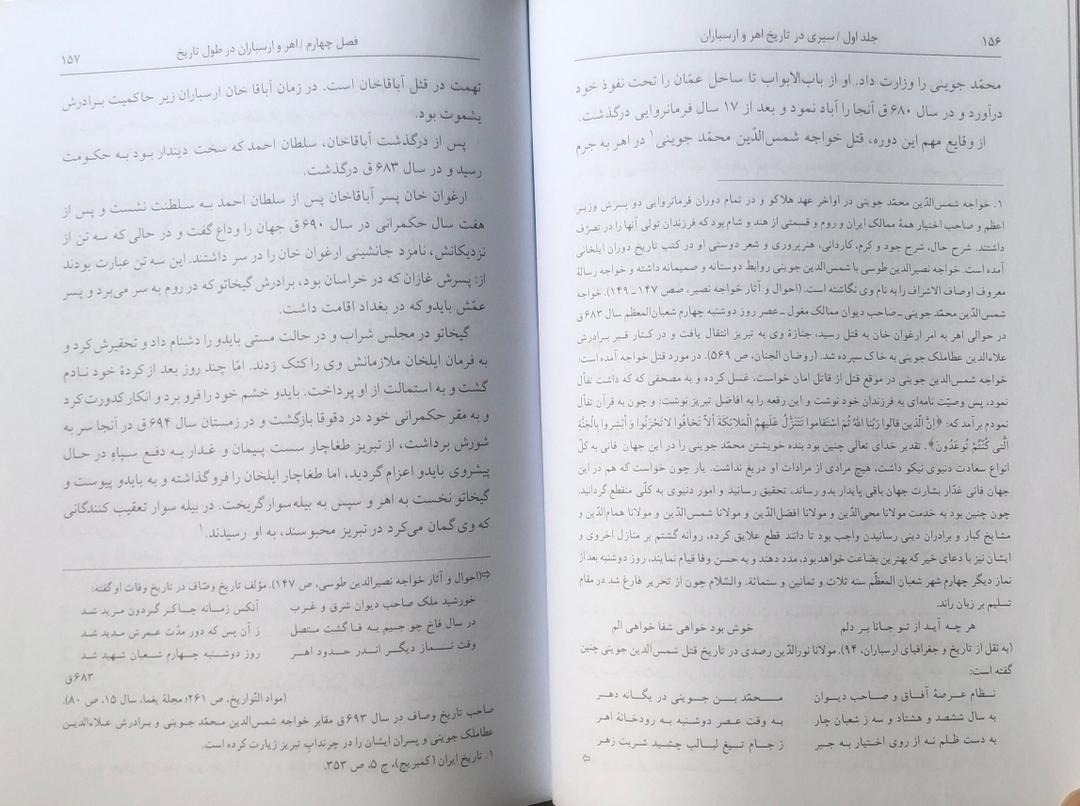 ۱۵۶
جلد اول / سیری در تاریخ اهر و ارسباران
محمّد جوینی را وزارت داد. او از باب‌الابواب تا ساحل عمّان را تحت نفوذ خود
درآورد و در سال ۶۸۰ ق آنجا را آباد نمود و بعد از ۱۷ سال فرمانروایی درگذشت.
از وقایع مهم این دوره، قتل خواجه شمس‌الدّین محمّد جوینی۱ در اهر به جرم
۱. خواجه شمس‌الدّین محمّد جوینی در اواخر عهد هلاکو و در تمام دوران فرمانروایی دو پسرش وزیر
اعظم و صاحب اختیار همهٔ ممالک ایران و روم و قسمتی از هند و شام بود که فرزندان تولی آنها را در تصرّف
داشتند. شرح حال، شرح جود و کرم، کاردانی، هنرپروری و شعر دوستی او در کتب تاریخ دوران ایلخانی
آمده است. خواجه نصیرالدین طوسی با شمس‌الدین جوینی روابط دوستانه و صمیمانه داشته و خواجه رسالهٔ
معروف اوصاف الاشراف را به نام وی نگاشته است. (احوال و آثار خواجه نصیر، صص ۱۴۷ ـ ۱۴۹). خواجه
شمس‌الدّین محمّد جوینی ـ صاحب دیوان ممالک مغول ـ عصر روز دوشنبه چهارم شعبان‌المعظم سال ۶۸۳ ق
در حوالی اهر به امر ارغوان خان به قتل رسید، جنازهٔ وی به تبریز انتقال یافت و در کنار قبر برادرش
علاءالدین عطاملک جوینی به خاک سپرده شد. (روضان الجنان، ص ۵۶۹). در مورد قتل خواجه آمده است:
خواجه شمس‌الدین جوینی در موقع قتل از قاتل امان خواست، غسل کرده و به مصحفی که که داشت تفأل
نمود، پس وصیّت نامه‌ای به فرزندان خود نوشت و این رقعه را به افاضل تبریز نوشت: و چون به قرآن تفأل
نمودم برآمد که: ﴿إنَّ الَّذین قالوا رَبُنا اللهُ ثُمَ اسْتَقاموا تَتَنَزَّلُ عَلَیهِمُ الْمَلائکَةَ ألاّ تَخافُوا ولاتَحْزَنُوا وَ أَبْشِروا بِالْجَنَّةِ
الَّتی کُنْتُم تُوعَدُونَ﴾. تقدیر خدای تعالی چنین بود بنده خویشتن محمّد جوینی را در این جهان فانی به کلّ
انواع سعادت دنیوی نیکو داشت، هیچ مرادی از مرادات او دریغ نداشت. یار چون خواست که هم در این
جهان فانی غدّار بشارت جهان باقی پایدار بدو رساند، تحقیق رسانید و امور دنیوی به کلّی منقطع گردانید.
چون چنین بود به خدمت مولانا محی‌الدّین و مولانا افضل‌الدّین و مولانا شمس‌الدّین و مولانا همام‌الدّین و
مشایخ کبار و برادران دینی رسانیدن واجب بود تا دانند قطع علایق کرده، روانه گشتم بر منازل اخروی و
ایشان نیز با دعای خیر که بهترین بضاعت خواهد بود، مدد دهند و به حسن وفا قیام نمایند، روز دوشنبه بعد از
نماز دیگر چهارم شهر شعبان المعظّم سنه ثلاث و ثمانین و ستمائة. والسّلام چون از تحریر فارغ شد در مقام
تسلیم بر زبان راند.
هر چه آید از تو جانا بر دلم خوش بود خواهی شفا خواهی الم
(به نقل از تاریخ و جغرافیای ارسباران، ۹۴). مولانا نورالدّین رصدی در تاریخ قتل شمس‌الدین جوینی چنین
گفته است:
نـظام عـرصهٔ آفـاق و صاحب دیـوان محـمّد بـن جـوینی در یگـانه دهـر
به سال ششصد و هشتاد و سه ز شعبان چار به وقت عصر دوشنبه به رودخانهٔ اهر
به دست ظلم نه از روی اختیار به جبر ز جام تیغ لبالب چشید شربت زهر
⇦
فصل چهارم / اهر و ارسباران در طول تاریخ
۱۵۷
تهمت در قتل آباقاخان است. در زمان آباقا خان ارسباران زیر حاکمیت برادرش
یشموت بود.
پس از درگذشت آباقاخان، سلطان احمد که سخت دیندار بود به حکومت
رسید و در سال ۶۸۳ ق درگذشت.
ارغوان خان پسر آباقاخان پس از سلطان احمد به سلطنت نشست و پس از
هفت سال حکمرانی در سال ۶۹۰ ق جهان را وداع گفت و در حالی که سه تن از
نزدیکانش، نامزد جانشینی ارغوان خان را در سر داشتند. این سه تن عبارت بودند
از: پسرش غازان که در خراسان بود، برادرش گیخاتو که در روم به سر می‌برد و پسر
عمّش بایدو که در بغداد اقامت داشت.
گیخاتو در مجلس شراب و در حالت مستی بایدو را دشنام داد و تحقیرش کرد و
به فرمان ایلخان ملازمانش وی را کتک زدند. امّا چند روز بعد از کردهٔ خود نادم
گشت و به استمالت از او پرداخت. بایدو خشم خود را فرو برد و انکار کدورت کرد
و به مقر حکمرانی خود در دقوقا بازگشت و در زمستان سال ۶۹۴ ق در آنجا سر به
شورش برداشت، از تبریز طغاچار سست پیمان و غدار به دفع سپاهِ در حال
پیشروی بایدو اعزام گردید، اما طغاچار ایلخان را فرو گذاشته و به بایدو پیوست و
گیخاتو نخست به اهر و سپس به بیله‌سوار گریخت. در بیله سوار تعقیب کنندگانی
که وی گمان می‌کرد در تبریز محبوسند، به او رسیدند.۱
⇨(احوال و آثار خواجه نصیرالدین طوسی، ص ۱۴۷). مؤلف تاریخ وصّاف در تاریخ وفات او گفته:
خورشید ملک صاحب دیوان شرق و غرب آنکس زمـانه چـاکـر گـردون مـرید شـد
در سال فاخ چو جیم به فا گشت متصل ز آن پس که دور مدّت عمرش مدید شد
وقت نـماز دیگـر انـدر حدود اهـر روز دوشنبه چهارم شعبان شهید شد
۶۸۳ ق
(مواد التّواریخ، ص ۲۶۱؛ مجلهٔ یغما، سال ۱۵، ص ۸۰).
صاحب تاریخ وصاف در سال ۶۹۳ ق مقابر خواجه شمس‌الدین محمّد جوینی و برادرش علاءالدین
عطاملک جوینی و پسران ایشان را در چرنداب تبریز زیارت کرده است.
۱. تاریخ ایران (کمبریج)، ج ۵، ص ۳۵۳.